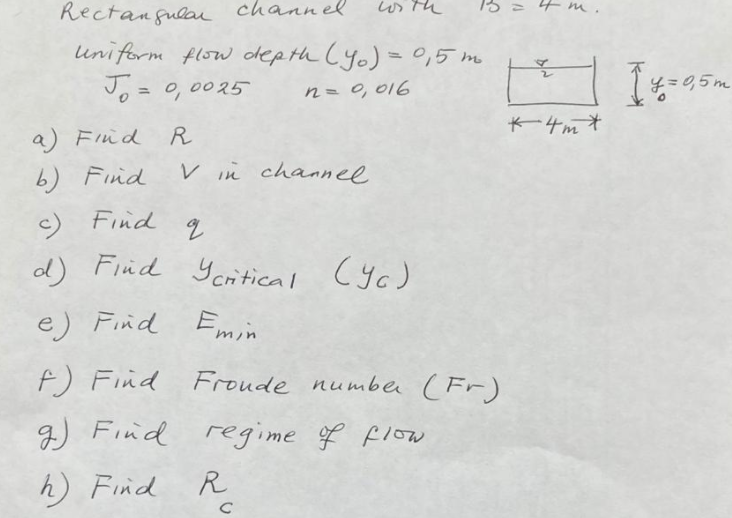 Rectangular channel with B = 4 m.
Uniform flow depth (y₀) = 0,5 m
J₀ = 0,0025 n = 0,016
y₀ = 0,5 m
4 m
a) Find R
b) Find V in channel
c) Find q
d) Find ycritical (yc)
e) Find Emin
f) Find Froude number (Fr)
g) Find regime of flow
h) Find Rc